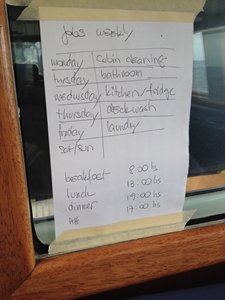 jobs weekly
monday cabin cleaning
tuesday bathroom
wedwsday kitchen/fridge
thursday deckwash
friday laundry
sat/sun
breakfast 8:00 hs
lunch 13:00 hs
dinner 19:00 hs
17:00 hs